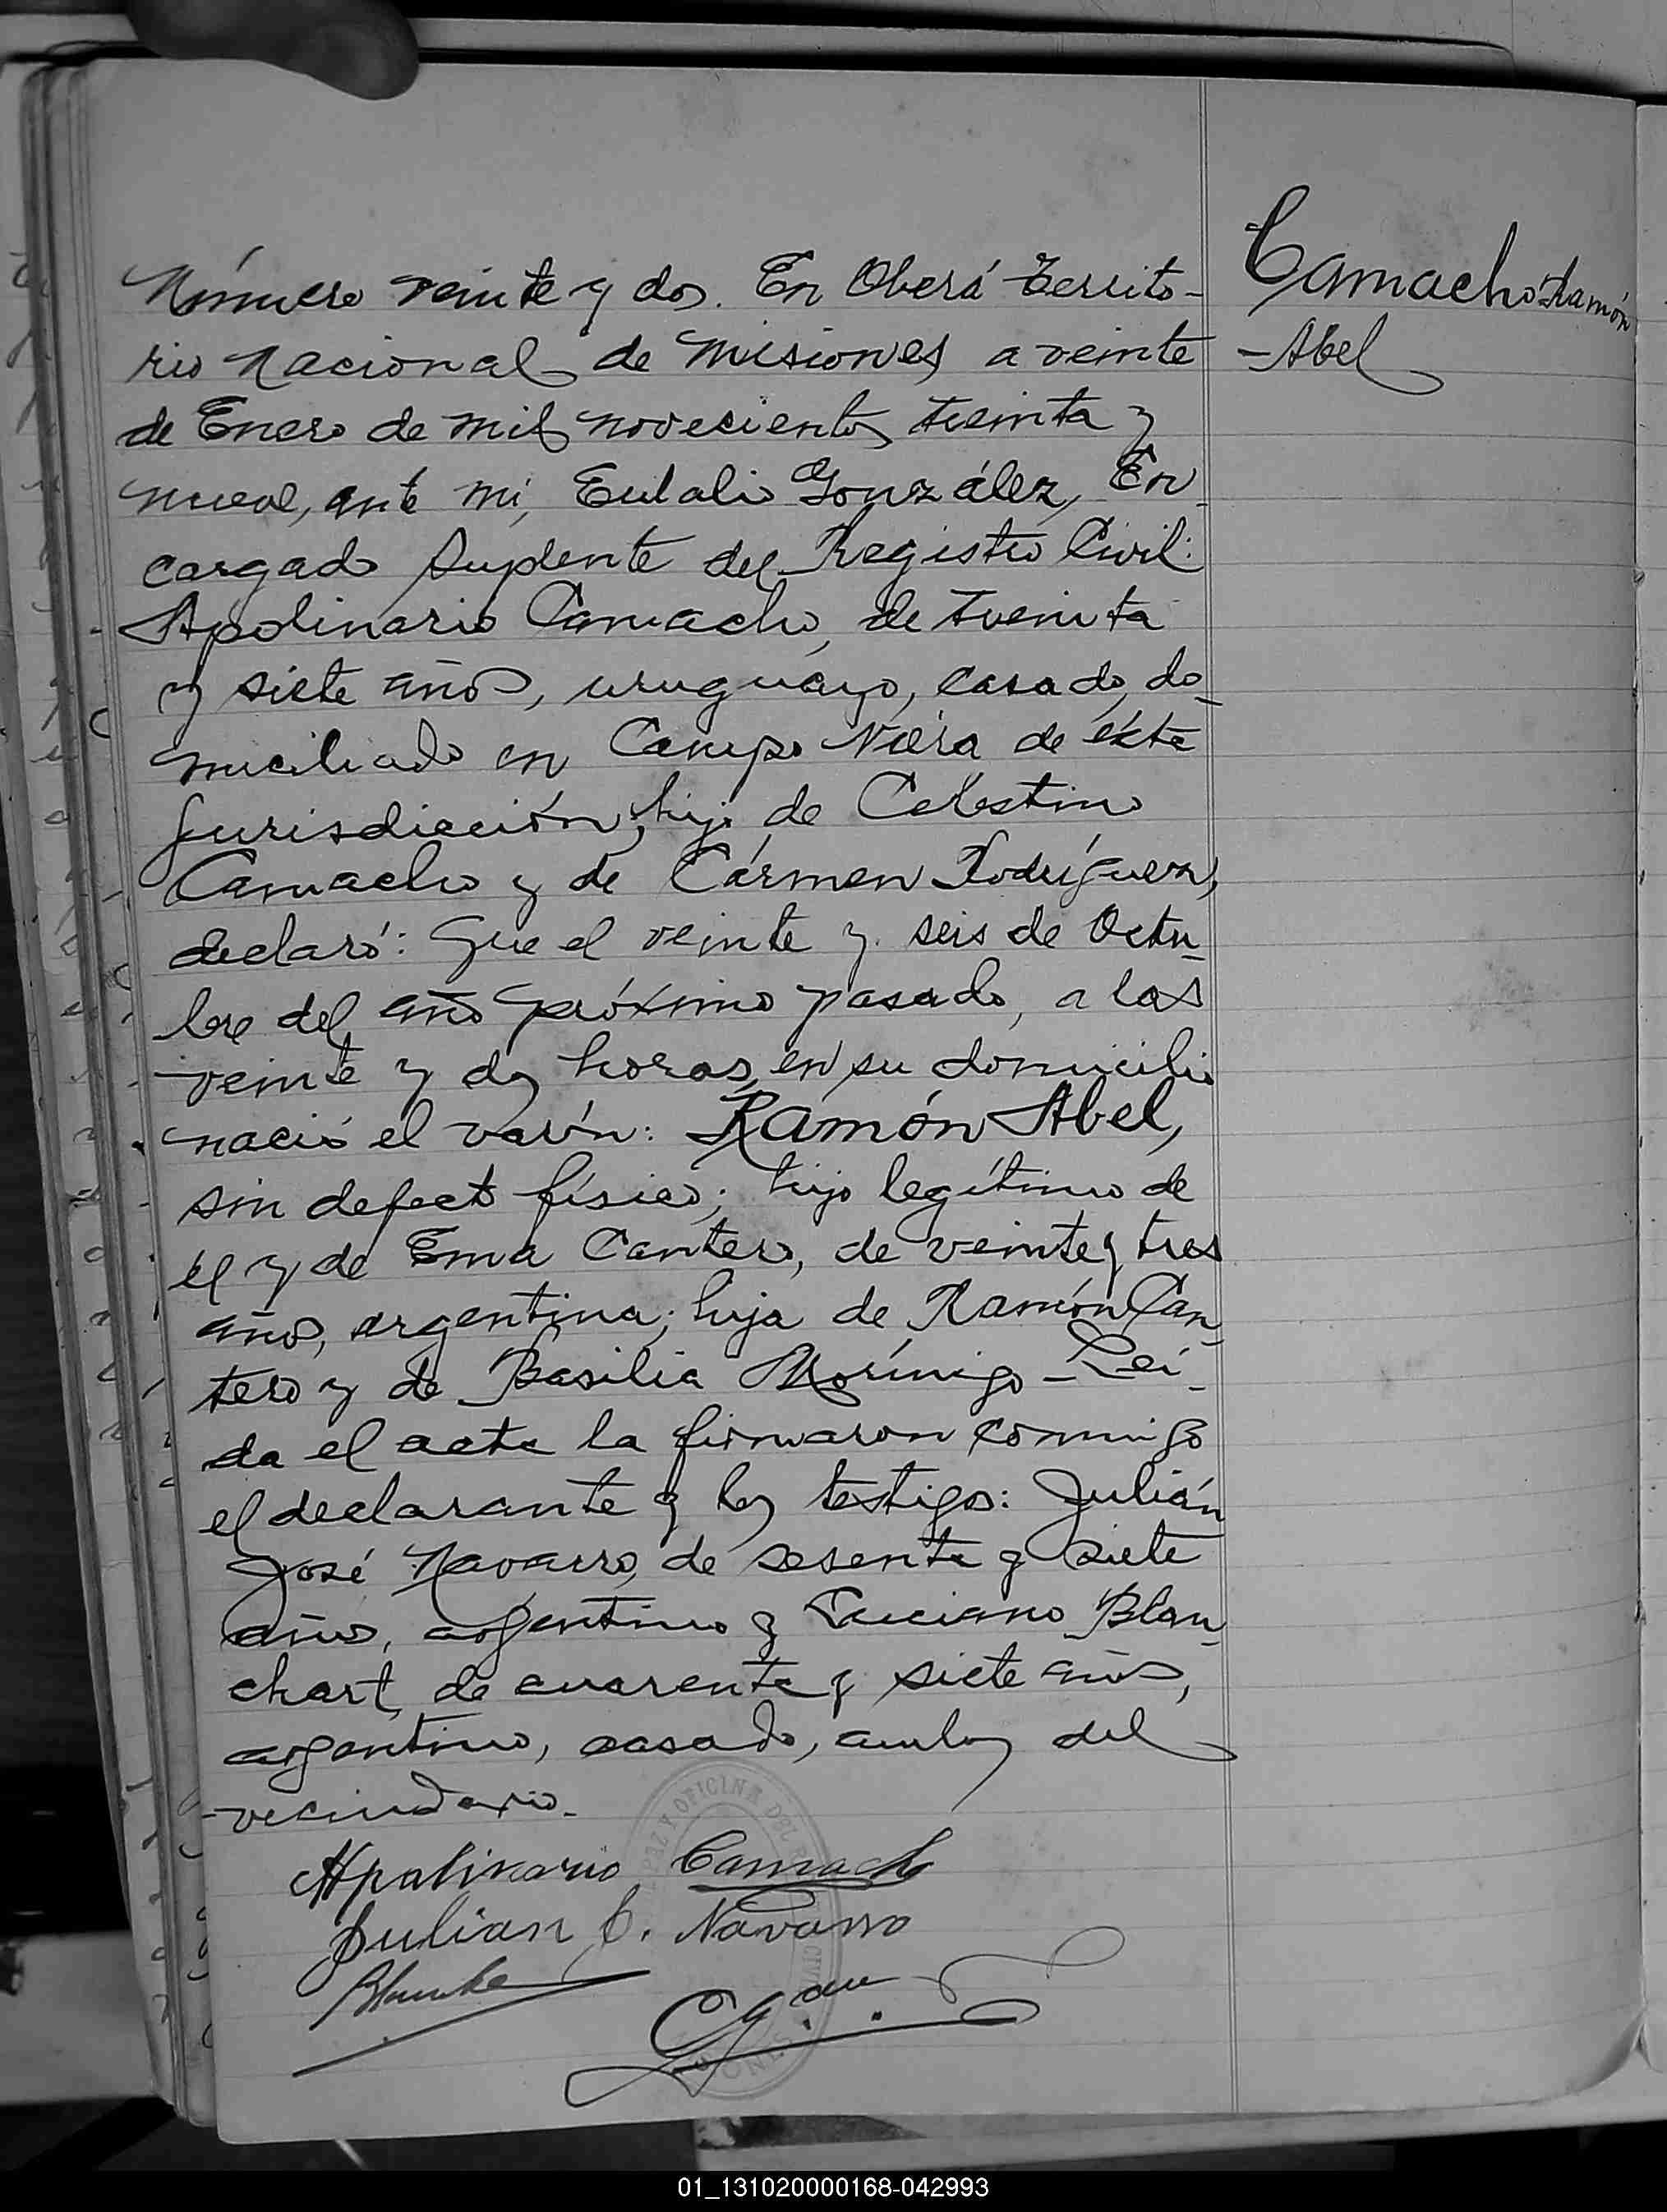 Número veinte y dos. En Oberá Territo-
rio Nacional de Misiones, a veinte
de Enero de mil novecientos treinta y
nueve, ante mi, Eulalio González, En-
cargado Suplente del Registro Civil:
Apolinario Camacho, de treinta
y siete años, uruguayo, casado, do-
miciliado en Campo Viera de ésta
jurisdicción, hijo de Celestino
Camacho y de Cármen Rodríguez,
declaró: Que el veinte y seis de Octu-
bre del año próximo pasado, a las
veinte y dos horas, en su domicilio
nació el varón: Ramón Abel,
sin defecto físico; hijo legítimo de
el y de Ema Cantero, de veinte y tres
años, argentina; hija de Ramón Can-
tero y de Basilia Morínigo - Leí-
da el acta la firmaron conmigo
el declarante y los testigos: Julián
José Navarro, de sesenta y siete
años, argentino y Luciano Blan-
chart, de cuarenta y siete años,
argentino, casado, ambos del
vecindario.
Apolinario Camacho
Julian J. Navarro
Camacho Ramón
-Abel
PAZ Y OFICINA DEL
01_131020000168-042993